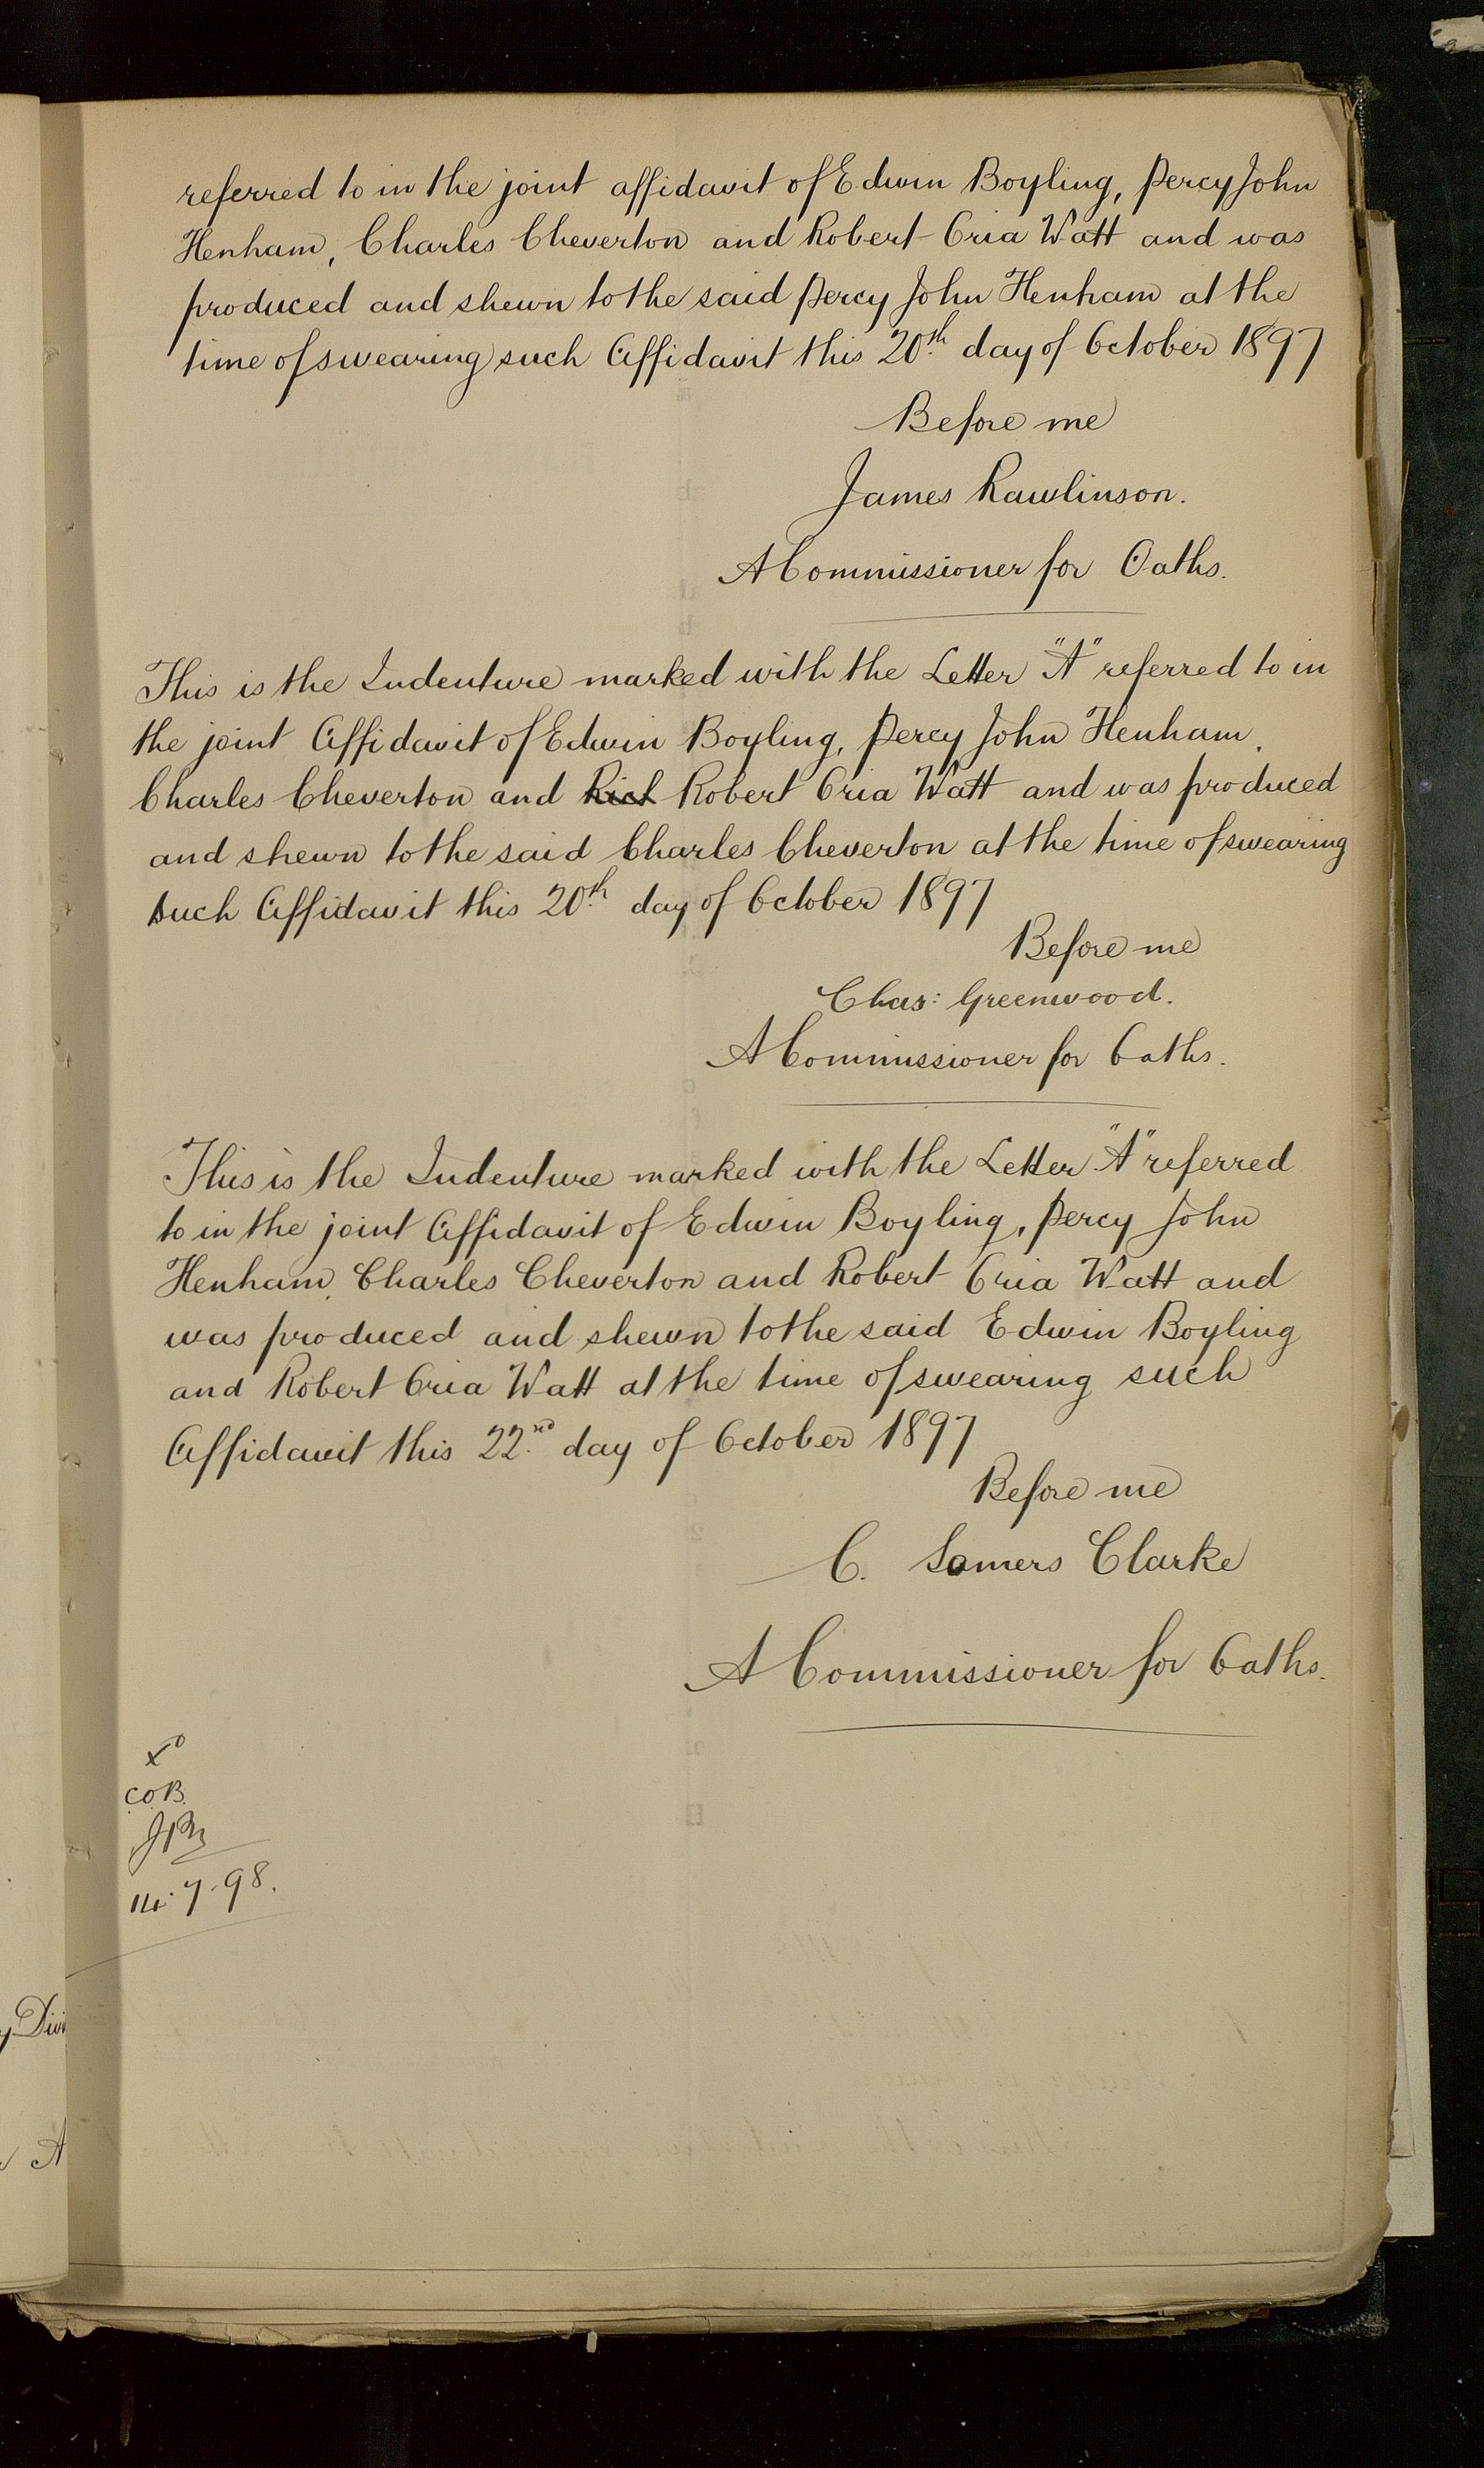 referred to in the joint affidavit of Edwin Boyling, Percy John
Henham, Charles Cheverton and Robert Oria Watt and was
produced and shewn to the said Percy John Henham at the
time of swearing such Affidavit this 20th day of October 1897
Before me
James Rawlinson.
A Commissioner for Oaths.
This is the Indenture marked with the Letter "A" referred to in
the joint Affidavit of Edwin Boyling, Percy John Henham,
Charles Cheverton and Rich Robert Oria Watt and was produced
and shewn to the said Charles Cheverton at the time of swearing
such Affidavit this 20th day of October 1897
Before me
Chas: Greenwood.
A Commissioner for Oaths.
This is the Indenture marked with the Letter "A" referred
to in the joint Affidavit of Edwin Boyling, Percy John
Henham, Charles Cheverton and Robert Oria Watt and
was produced and shewn to the said Edwin Boyling
and Robert Oria Watt at the time of swearing such
Affidavit this 22nd day of October 1897
Before me
C. Somers Clarke
A Commissioner for Oaths.
C.O.B.
14.7.98.
y Divi
A